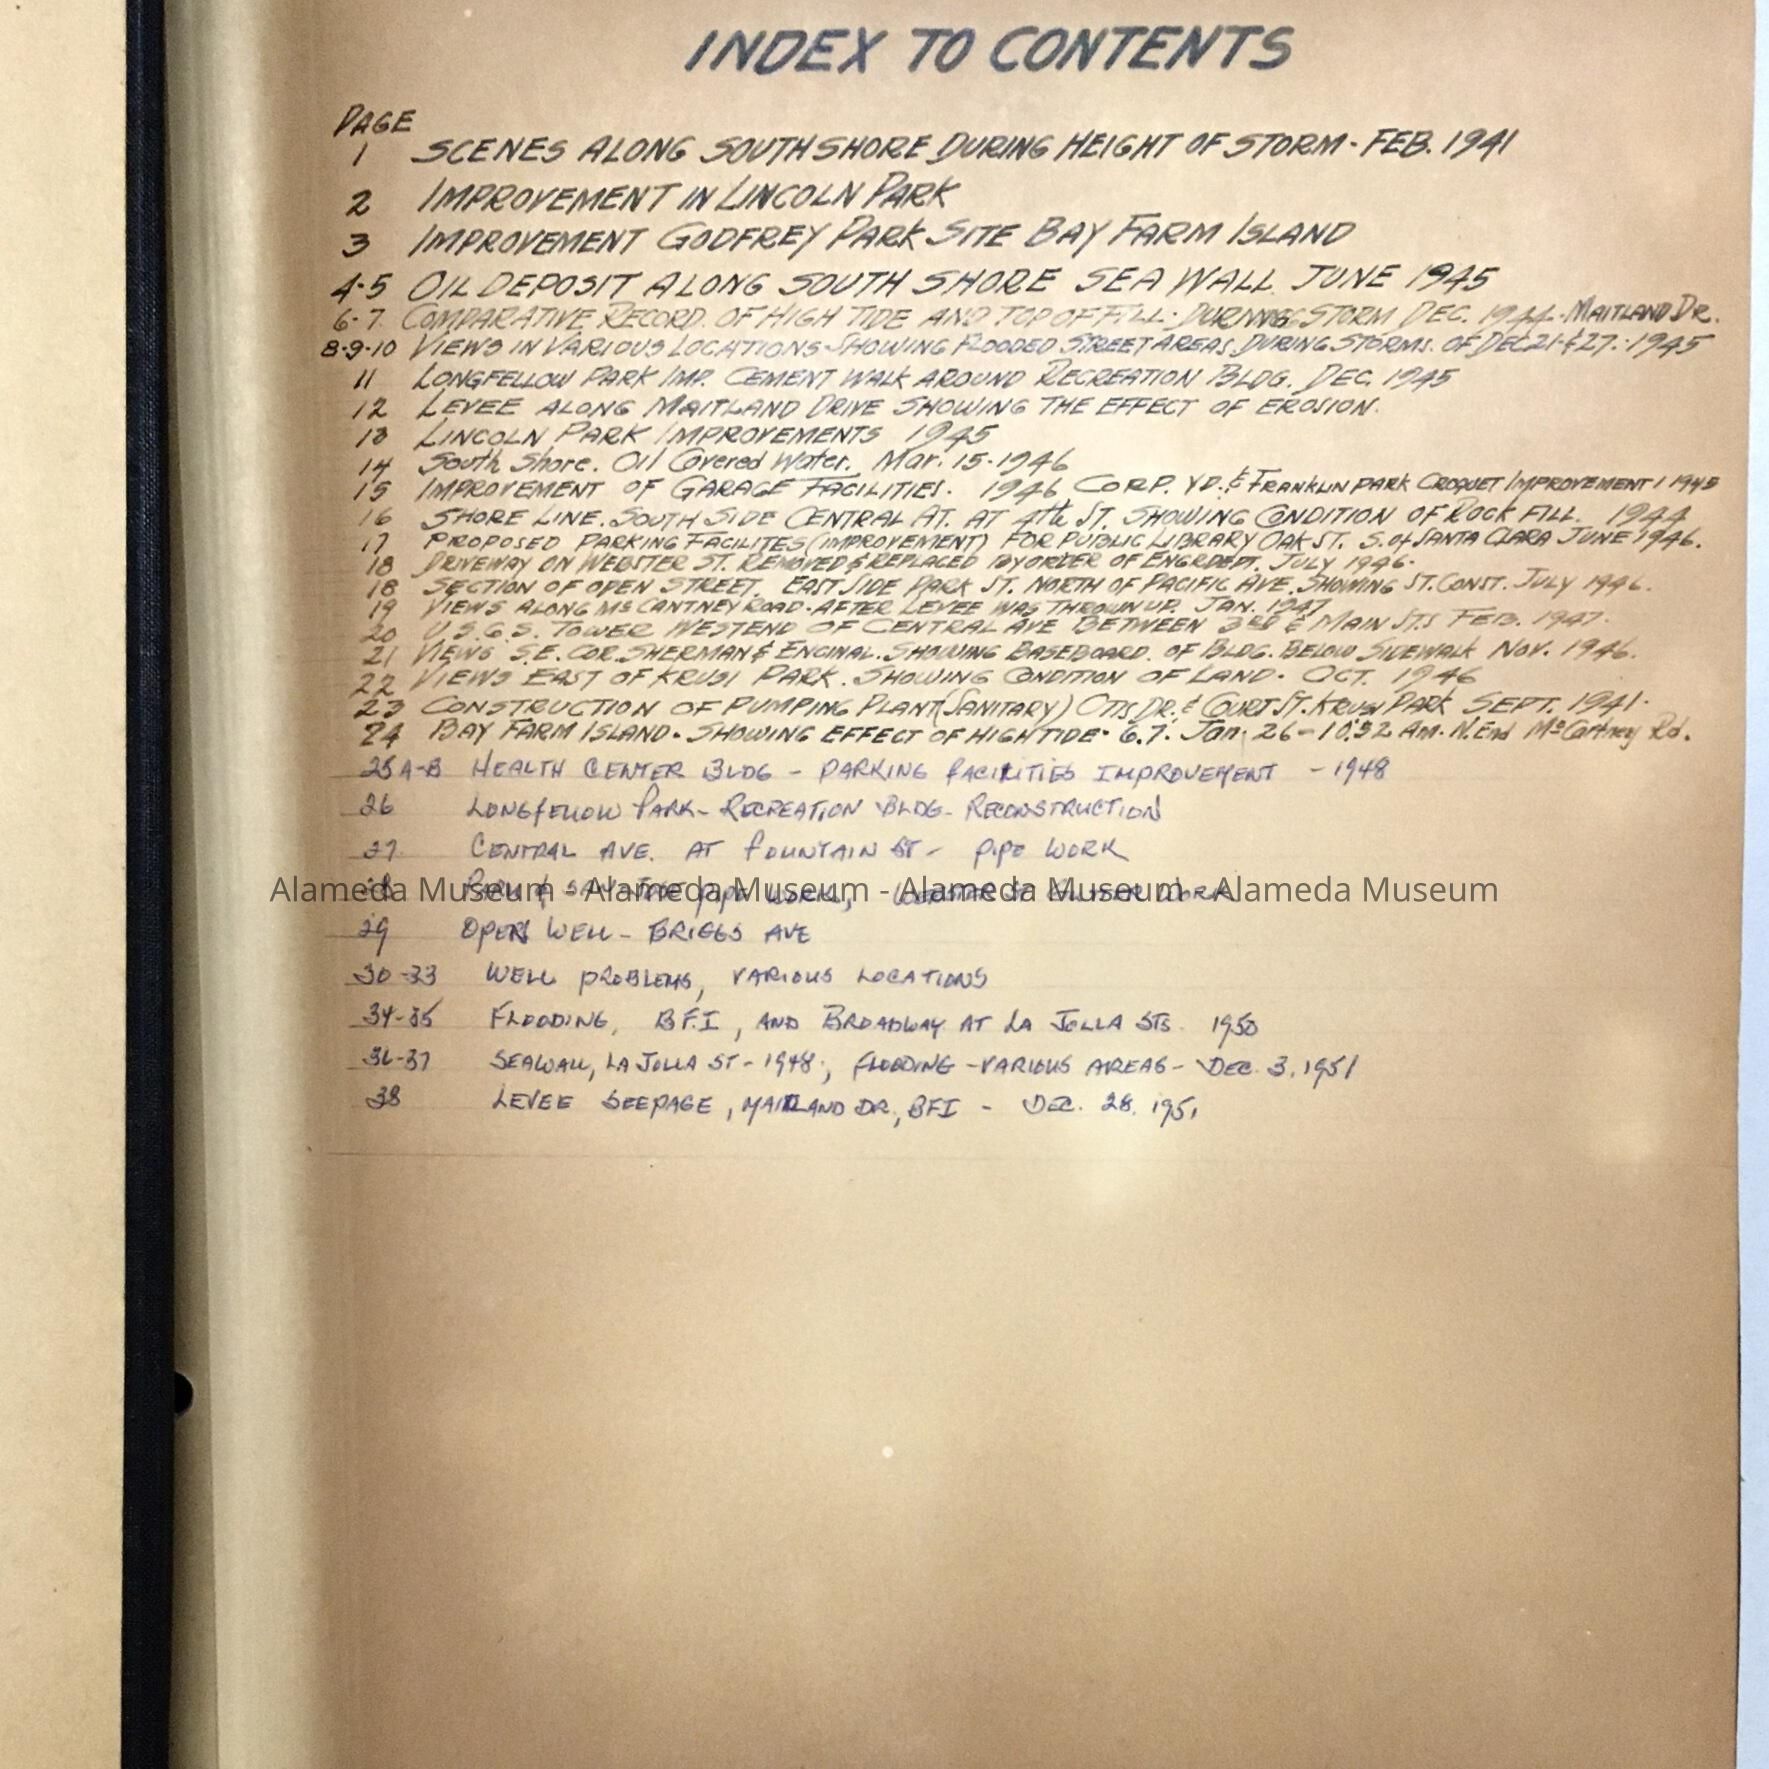 INDEX TO CONTENTS
PAGE
1 SCENES ALONG SOUTH SHORE DURING HEIGHT OF STORM - FEB. 1941
2 IMPROVEMENT IN LINCOLN PARK
3 IMPROVEMENT GODFREY PARK SITE BAY FARM ISLAND
4-5 OIL DEPOSIT ALONG SOUTH SHORE SEA WALL JUNE 1945
6-7 COMPARATIVE RECORD OF HIGH TIDE AND TOP OF FILL - DURING STORM DEC. 1944 - MAITLAND DR.
8-9-10 VIEWS IN VARIOUS LOCATIONS SHOWING FLOODED STREET AREAS DURING STORMS OF DEC 21 & 27 - 1945
11 LONGFELLOW PARK IMP. CEMENT WALK AROUND RECREATION BLDG. DEC. 1945
12 LEVEE ALONG MAITLAND DRIVE SHOWING THE EFFECT OF EROSION.
13 LINCOLN PARK IMPROVEMENTS 1945
14 South Shore. Oil Covered Water. Mar. 15-1946
15 IMPROVEMENT OF GARAGE FACILITIES. 1946 CORP. YD. & FRANKLIN PARK CROQUET IMPROVEMENT 1945
16 SHORE LINE. SOUTH SIDE CENTRAL AT. AT 4th ST. SHOWING CONDITION OF ROCK FILL. 1944
17 PROPOSED PARKING FACILITES (IMPROVEMENT) FOR PUBLIC LIBRARY OAK ST. S. of SANTA CLARA JUNE 1946.
18 DRIVEWAY ON WEBSTER ST. REMOVED & REPLACED BY ORDER OF ENGR DEPT. JULY 1946.
18 SECTION OF OPEN STREET. EAST SIDE PARK ST. NORTH OF PACIFIC AVE. SHOWING ST. CONST. JULY 1946.
19 VIEWS ALONG McCANTNEY ROAD - AFTER LEVEE WAS THROWN UP. JAN. 1947
20 U.S.G.S. TOWER WESTEND OF CENTRAL AVE BETWEEN 3RD & MAIN STS FEB. 1947.
21 VIEWS S.E. COR. SHERMAN & ENCINAL. SHOWING BASEBOARD OF BLDG. BELOW SIDEWALK NOV. 1946.
22 VIEWS EAST OF KRUSI PARK. SHOWING CONDITION OF LAND - OCT. 1946
23 CONSTRUCTION OF PUMPING PLANT (SANITARY) OTIS DR. & COURT ST. KRUSI PARK SEPT. 1941.
24 BAY FARM ISLAND - SHOWING EFFECT OF HIGH TIDE - 6.7. Jan. 26 - 10:32 Am. N. End McCartney Rd.
25 A-B HEALTH CENTER BLDG - PARKING FACILITIES IMPROVEMENT - 1948
26 LONGFELLOW PARK - RECREATION BLDG - RECONSTRUCTION
27 CENTRAL AVE. AT FOUNTAIN ST - PIPE WORK
28 PARK & SAN JOSE PIPE WORK, WEBSTER ST WORK
Alameda Museum - Alameda Museum - Alameda Museum - Alameda Museum
29 OPEN WELL - BRIGGS AVE
30-33 WELL PROBLEMS, VARIOUS LOCATIONS
34-35 FLOODING, B.F.I, AND BROADWAY AT LA JOLLA STS. 1950
36-37 SEAWALL, LA JOLLA ST - 1948; FLOODING - VARIOUS AREAS - DEC. 3, 1951
38 LEVEE SEEPAGE, MAITLAND DR., BFI - DEC. 28, 1951